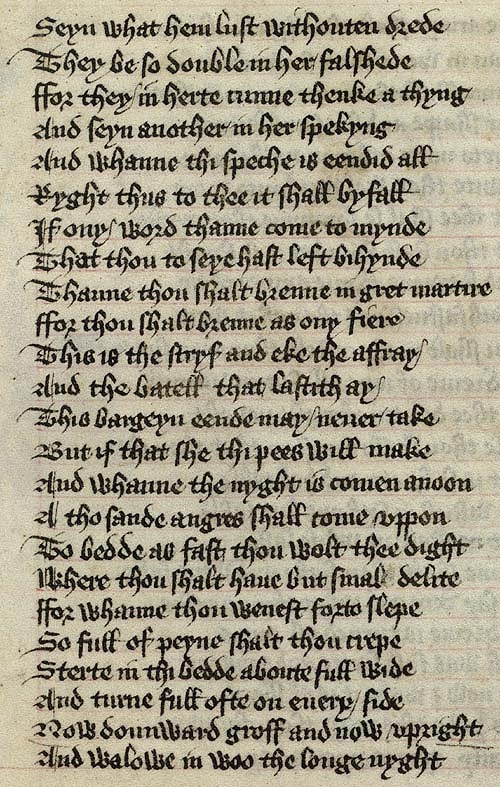 Seyn what hem lust withouten drede
They be so double in her falshede
ffor they in herte cunne thenke a thyng
And seyn another in her spekyng
And whanne thi speche is eendid all
Ryght thus to thee it shall byfall
If ony word thanne come to mynde
That thou to seye hast left bihynde
Thanne thou shalt brenne in gret martire
ffor thou shalt brenne as ony fiere
This is the stryf and eke the affray
And the batell that lastith ay
This bargeyn eende may never take
But if that she thi pees will make
And whanne the nyght is comen anoon
A thosande angres shall come uppon
To bedde as fast thou wolt thee dight
Where thou shalt haue but smal delite
ffor whanne thou wenest forto slepe
So full of peyne shalt thou crepe
Sterte in thi bedde aboute full wide
And turne full ofte on euery side
Now dounward groff and now upright
And walowe in woo the longe nyght